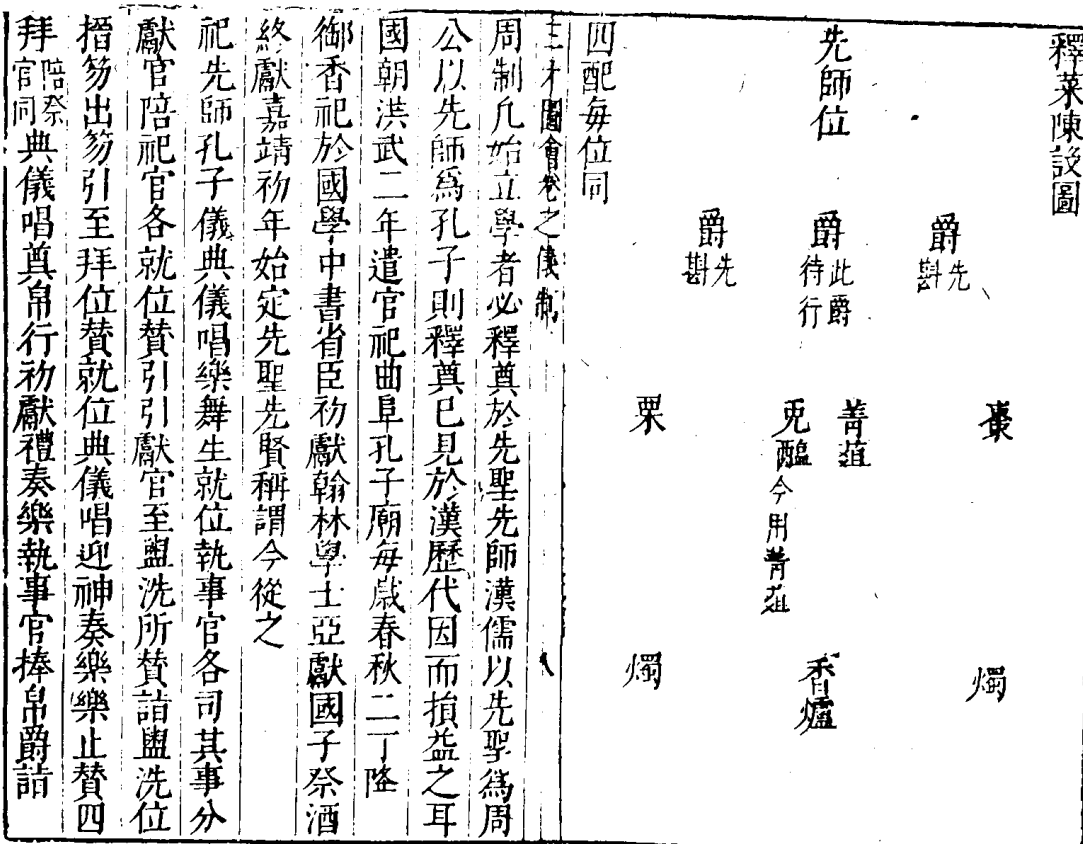 釋菜陳設圖
先師位
爵先斟
爵此爵待行
爵先斟
棗
菁菹
兎醢今用菁菹
栗
燭
香爐
燭
四配每位同
三才圖會卷之儀制 八
周制凡始立學者必釋奠於先聖先師漢儒以先聖爲周
公以先師爲孔子則釋奠已見於漢歷代因而損益之耳
國朝洪武二年遣官祀曲阜孔子廟每歲春秋二丁降
御香祀於國學中書省臣初獻翰林學士亞獻國子祭酒
終獻嘉靖初年始定先聖先賢稱謂今從之
祀先師孔子儀典儀唱樂舞生就位執事官各司其事分
獻官陪祀官各就位贊引引獻官至盥洗所贊詣盥洗位
搢笏出笏引至拜位贊就位典儀唱迎神奏樂樂止贊四
拜陪祭官同典儀唱奠帛行初獻禮奏樂執事官捧帛爵詣